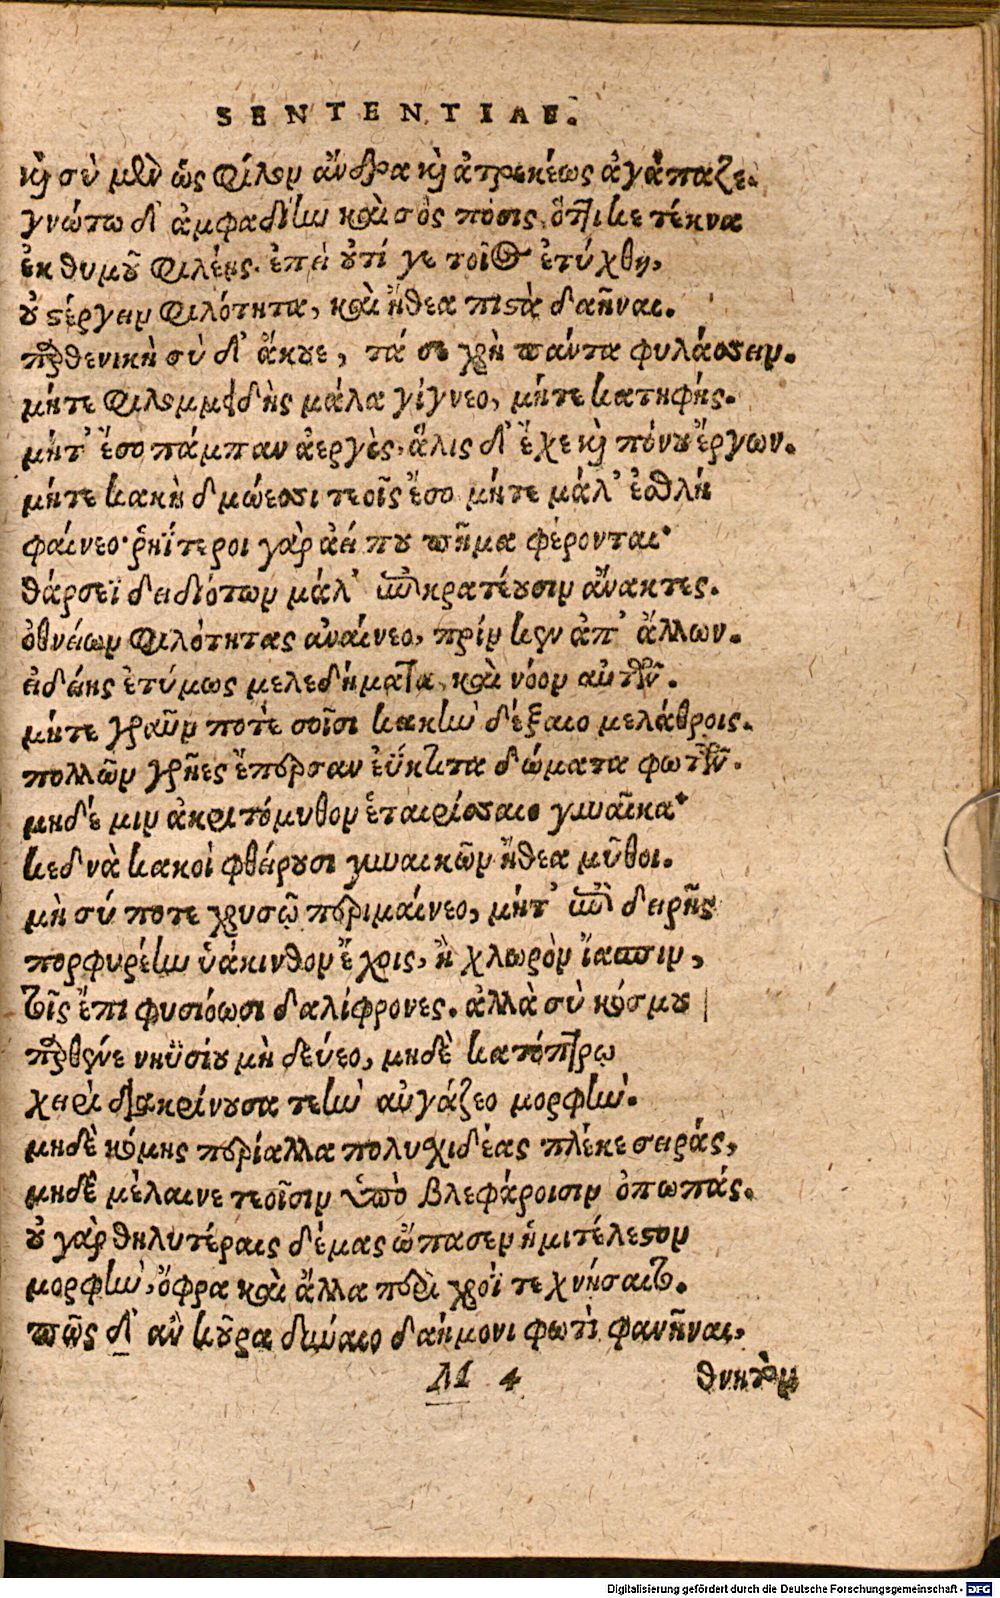 SENTENTIAE.
καὶ σὺ μὲν ὡς φίλον ἄνδρα καὶ ἀτρεκέως ἀγάπαζε.
γνώτω δ' ἀμφαδίην καὶ σὸς πόσις, ὅττι κε τέκνα
ἐκ θυμοῦ φιλέῃς. ἐπεὶ οὔτί γε τοῖος ἐτύχθη,
οὐ στέργειν φιλότητα, καὶ ἤθεα πιστὰ δαῆναι.
παρθενικὴ σὺ δ' ἄκουε, τά σε χρὴ πάντα φυλάσσειν.
μήτε φιλομμειδὴς μάλα γίγνεο, μήτε κατηφής.
μήτ' ἔσο πάμπαν ἀεργὲς, ἅλις δ' ἔχε καὶ πόνου ἔργων.
μήτε κακὴ δμώεσσι τεοῖς ἔσο μήτε μάλ' ἐσθλή
φαίνεο· ῥηΐτεροι γὰρ ἀεί που πῆμα φέρονται·
θάρσεϊ δειδιότων μάλ' ἐπικρατέουσιν ἄνακτες.
ὀθνείων φιλότητας ἀναίνεο, πρίν κεν ἀπ' ἄλλων.
εἰδείης ἐτύμως μελεδήματα, καὶ νόον αὐτῶν.
μήτε γραῦν ποτὲ σοῖσι κακὴν δέξαιο μελάθροις.
πολλῶν γρῆες ἔπερσαν ἐΰκτιτα δώματα φωτῶν.
μηδέ μιν ἀκριτόμυθον ἑταιρίσσαιο γυναῖκα·
κεδνὰ κακοὶ φθείρουσι γυναικῶν ἤθεα μῦθοι.
μὴ σύ ποτε χρυσῷ περιμαίνεο, μήτ' ἐπὶ δειρῆς
πορφυρέην ὑάκινθον ἔχοις, ἢ χλωρὸν ἴασπιν,
τοῖς ἔπι φυσιόωσι δαλίφρονες. ἀλλὰ σὺ κόσμου
παρθένε νηϋσίου μὴ δεύεο, μηδὲ κατόπτρῳ
χειρὶ διακρίνουσα τεὴν αὐγάζεο μορφήν.
μηδὲ κόμης περίαλλα πολυσχιδέας πλέκε σειράς,
μηδὲ μέλαινε τεοῖσιν ὑπὸ βλεφάροισιν ὀπωπάς.
οὐ γὰρ θηλυτέραις δέμας ὤπασεν ἡμιτέλεστον
μορφὴν, ὄφρα καὶ ἄλλα περὶ χροῒ τεχνήσαιτο.
πῶς δ' ἂν κοῦρα δύναιο δαήμονι φωτὶ φανῆναι,
M 4 θνητὸν
Digitalisierung gefördert durch die Deutsche Forschungsgemeinschaft - DFG